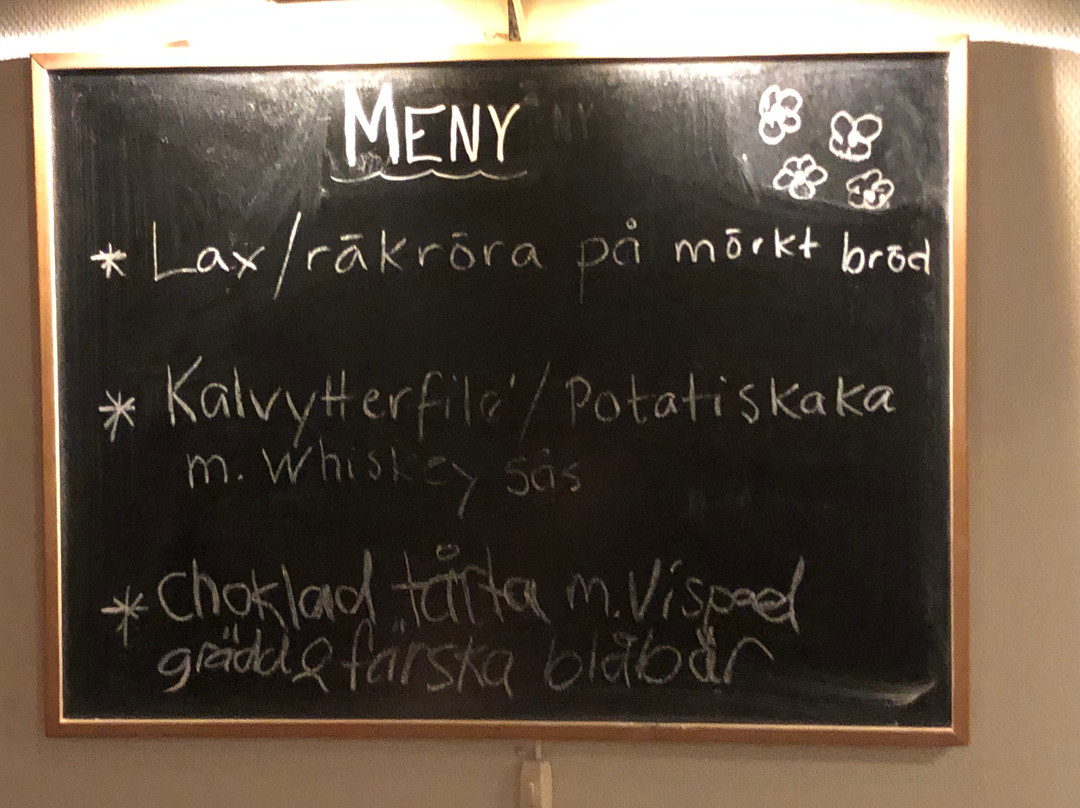 MENY
* Lax/räkröra på mörkt bröd
* Kalvytterfilé/Potatiskaka
m. Whiskey sås
* Choklad tårta m. Vispad
grädde färska blåbär